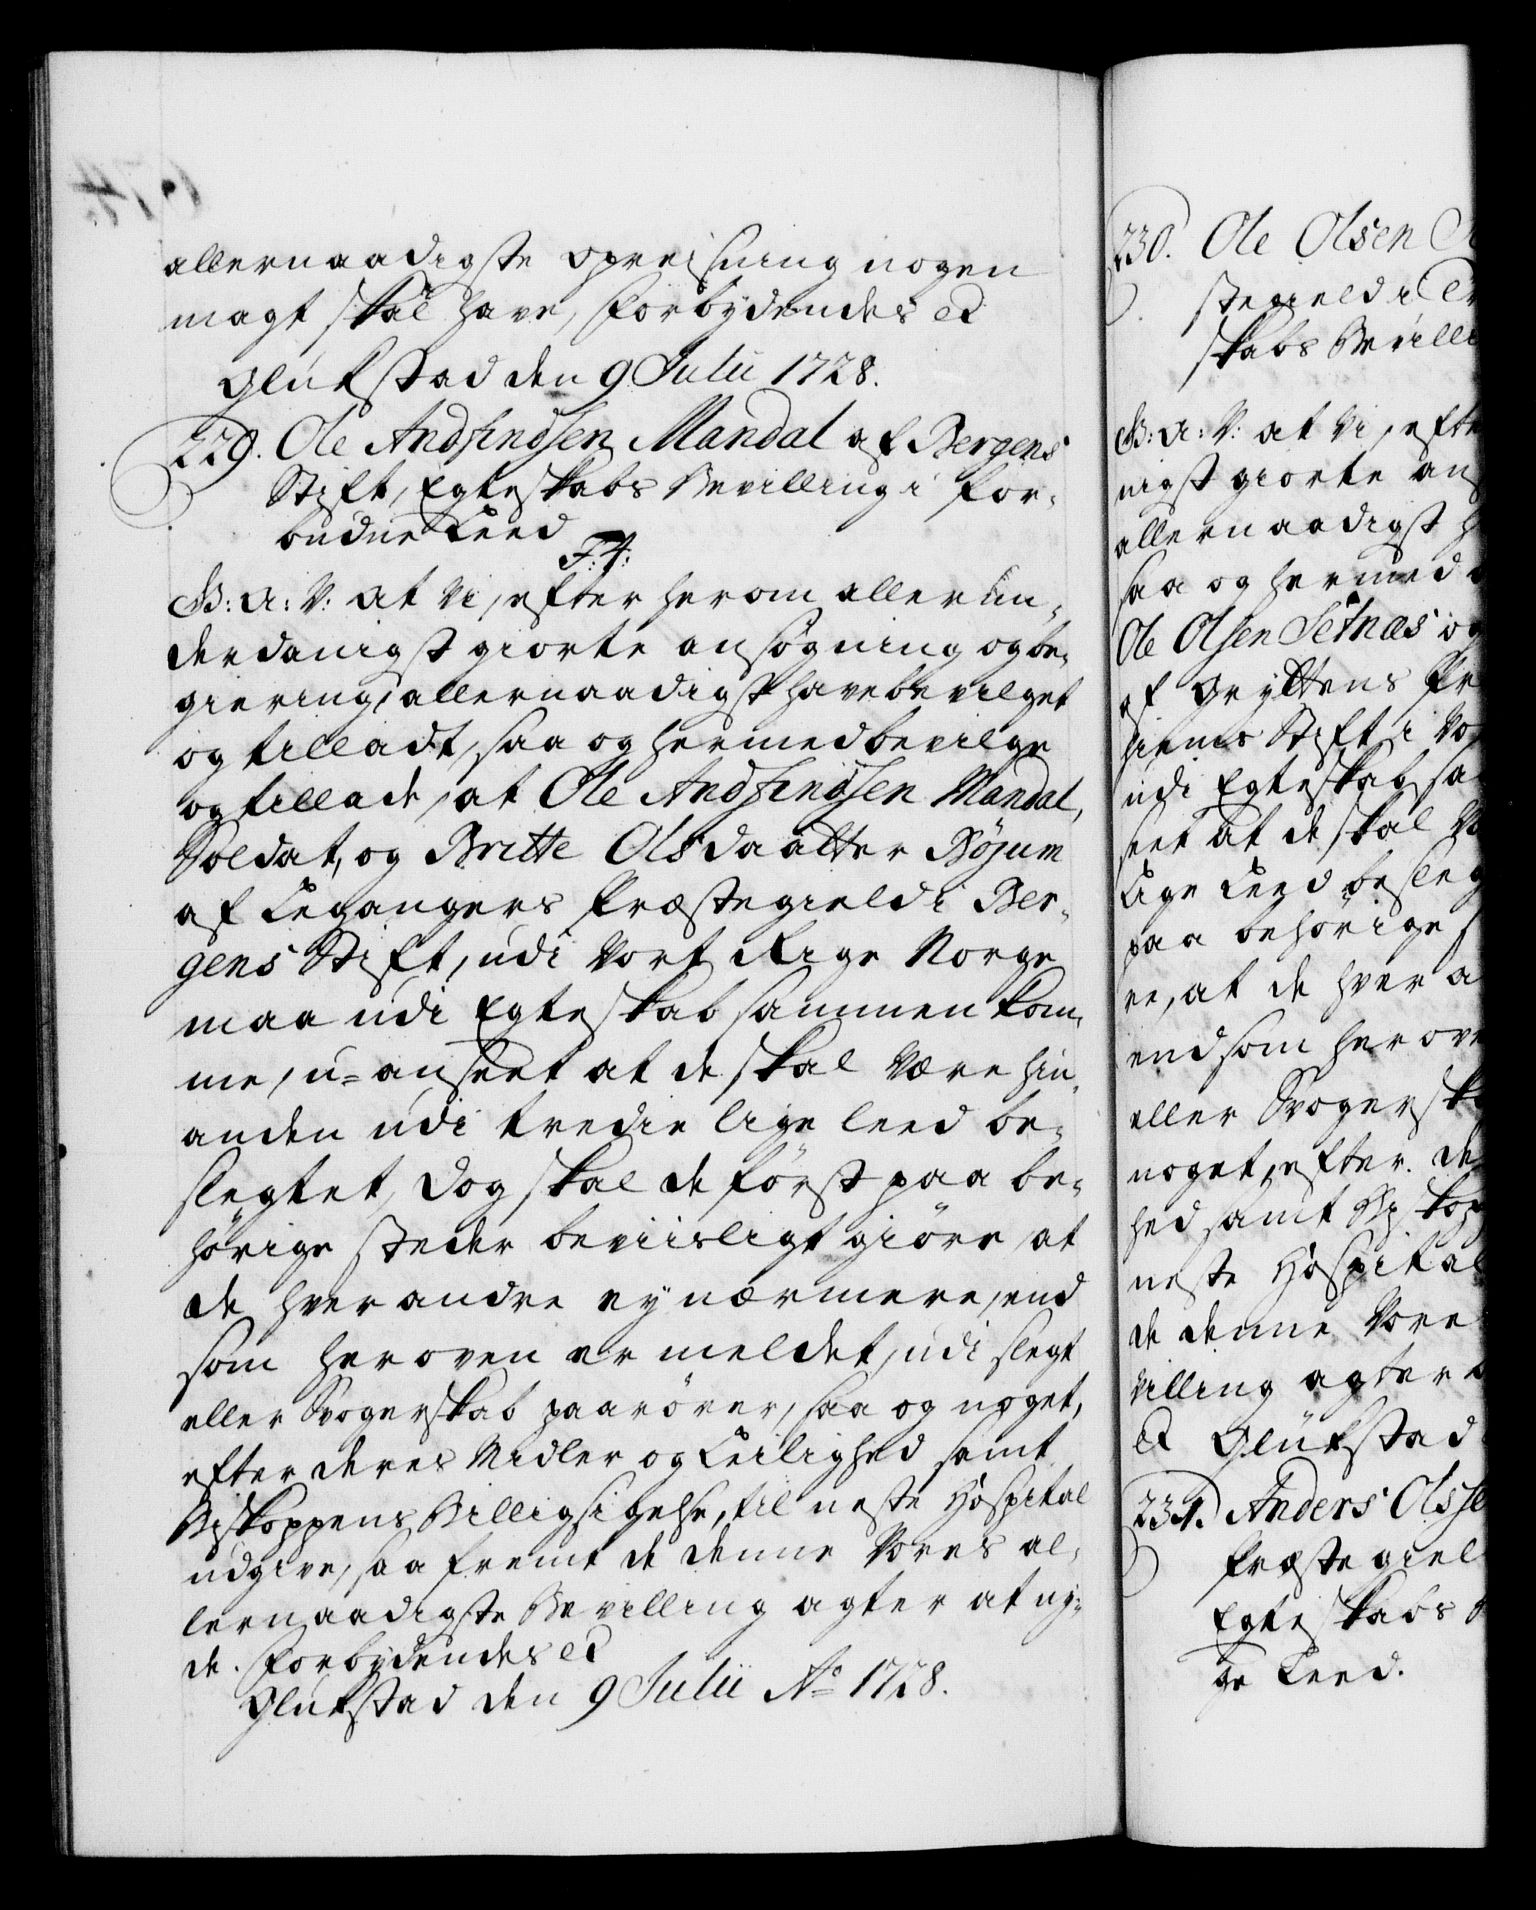 allernaadigste opreisning nogen
magt skal have, forbydendes &
Glükstad den 9 Julii 1728.
229. Ole Andfindsen Mandal af Bergens
Stift, Egteskabs Bevilling i for-
budne Leed
F: 4:
G.B: A: V: at vi, efter herom allerun-
derdanigst giorte ansøgning og be-
giering, allernaadigst have bevilget
og tilladt, saa og hermed bevilge
og tillade, at Ole Andfindsen Mandal,
Soldat, og Britte Olsdaatter Böyum
af Leganger Præstegield i Ber-
gens Stift, udi Vort Rige Norge
maa udi Egteskab sammen kom-
me, u-anseet at de skal være hin-
anden udi tredie lige leed be-
slegtet, dog skal de først paa be-
hørige steder beviisligt giøre, at
de hver andre ey nærmere, end
som her oven er meldet, udi slegt
eller Svogerskab paarører, saa og noget,
efter deres Midler og Leilighed samt
Biskoppens Billigsigelse, til neste Hospital
udgive, saafremt de denne Vores al-
lernaadigste Bevilling agter at ny-
de. Forbydendes &
Glükstad den 9 Julii Ao 1728.
230. Ole Olsen
stegield i
skabs Bevilli
B: A: V: at vi, efte
nigst giorte ans
allernaadigst h
saa og hermed
Ole Olsen Setnæs og
af Gryttens Pr
hiems Stift i Vo
udi Egteskab sa
seet at de skal Væ
lige Leed besleg
paa behørige s
re, at de hver a
end som her ove
eller Svogersk
noget, efter de
hed samt Biskop
neste Hospital
de denne Vore
villing agter a
& Glükstad
231. Anders Olss
Præstegiel
Egteskabs B
ge Leed.